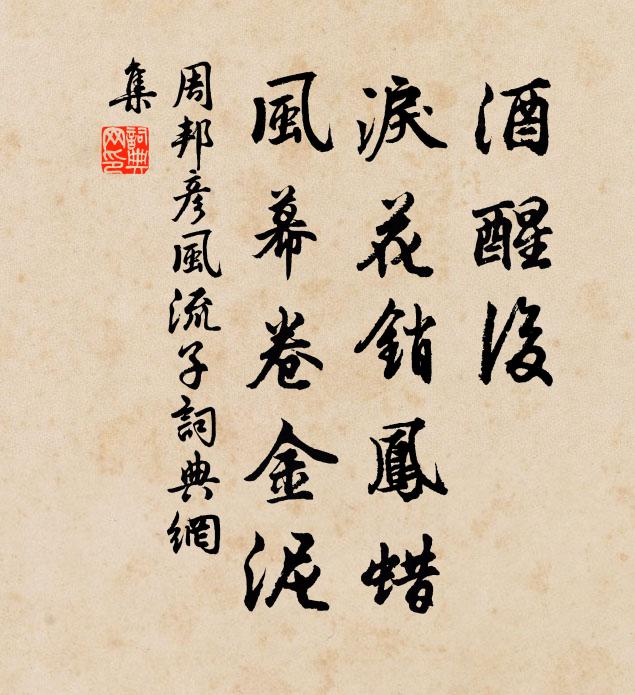 酒醒後
淚花銷鳳蜡
風幕卷金泥
周邦彥風流子詞典網
集
詞典網印